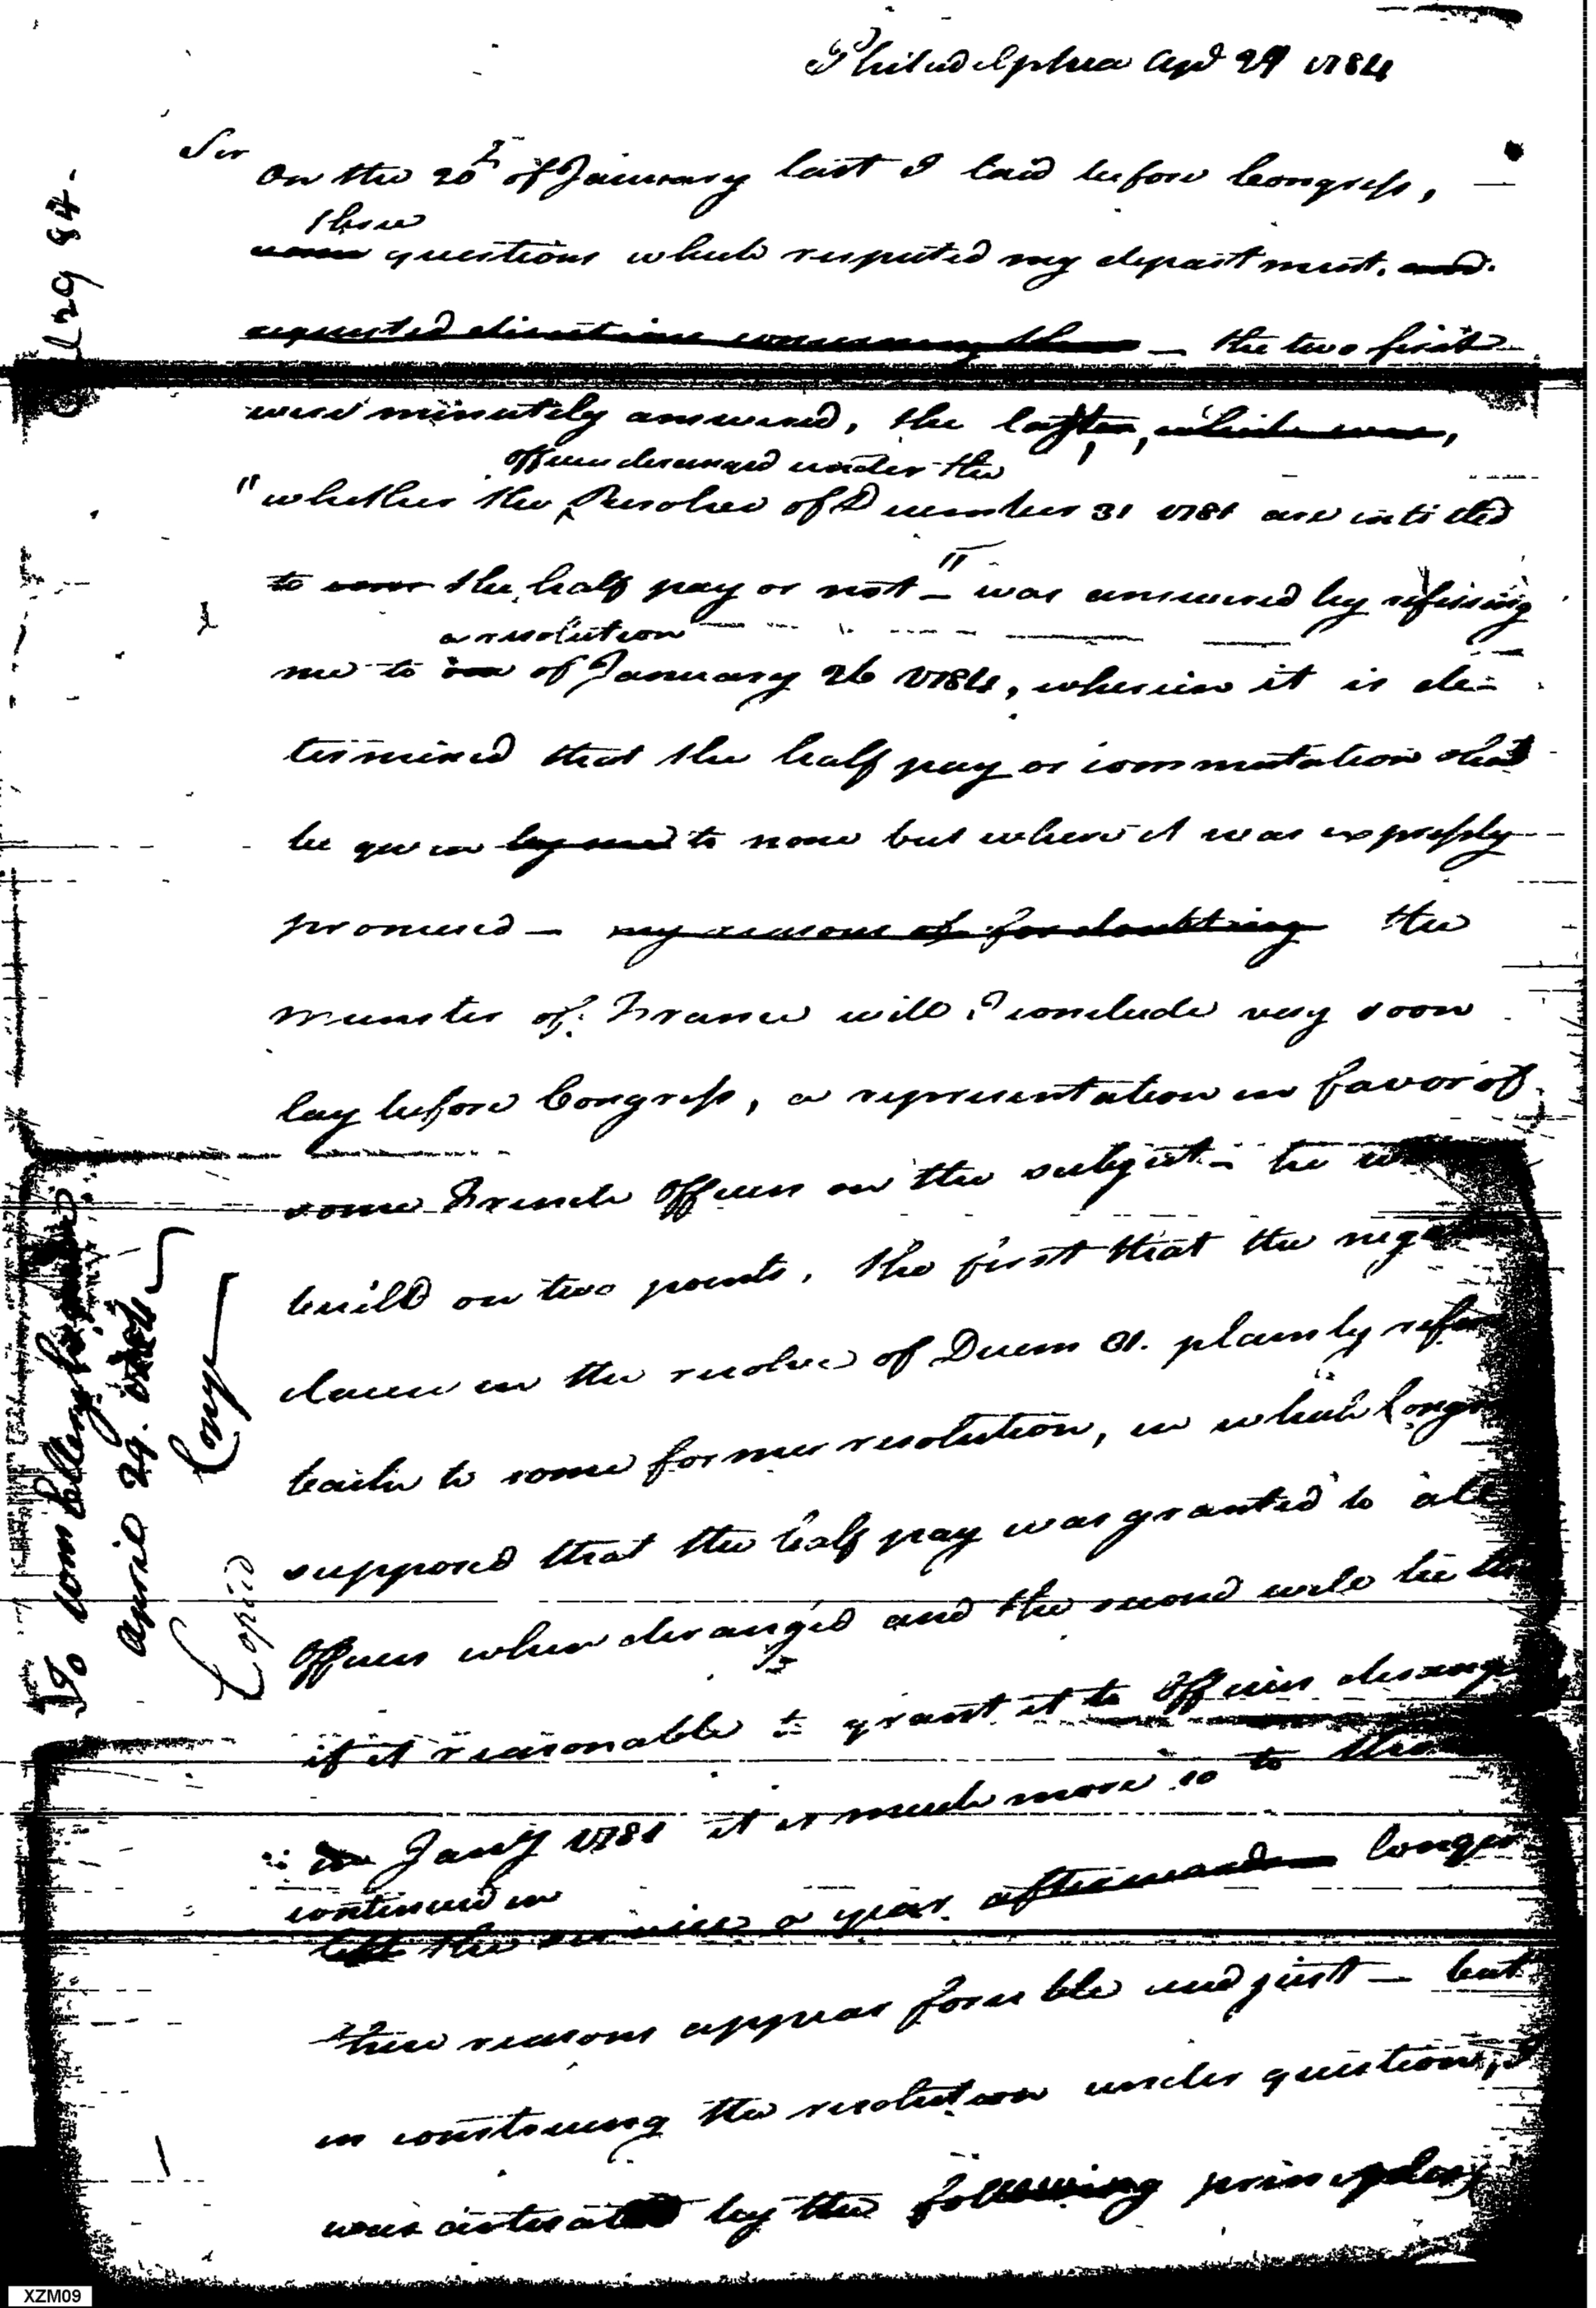 Philadelphia Apl 29 1784
Sir
On the 20th of January last I laid before Congress,
three
some questions which respected my department. and
requested directions concerning them — the two first
were minutely answered, the last,
officers deranged under the
"whether the Resolve of December 31 1781 are intitled
to the half pay or not —" was answered by refering
a resolution
me to of January 26 1784, wherein it is de-
termined that the half pay or commutation shall
be given by me to none but where it was expressly
promised — my reasons of for doubting the
minister of France will I conclude very soon
lay before Congress, a representation in favor of
some French Officers on the subject — he
build on two points, the first that the
clause in the resolve of Decem 31. plainly
to some former resolution, in which
supposed that the half pay was granted to all
Officers when deranged and the second will be
if it reasonable to grant it to Officers
in Jany 1781 it is much more so to
continued in
left the service a year afterwards longer
these reasons appear forceable and just — but
in construing the resolution under question, I
was by the following principles
29 84.
To
April 29.
Copy
Copied
XZM09